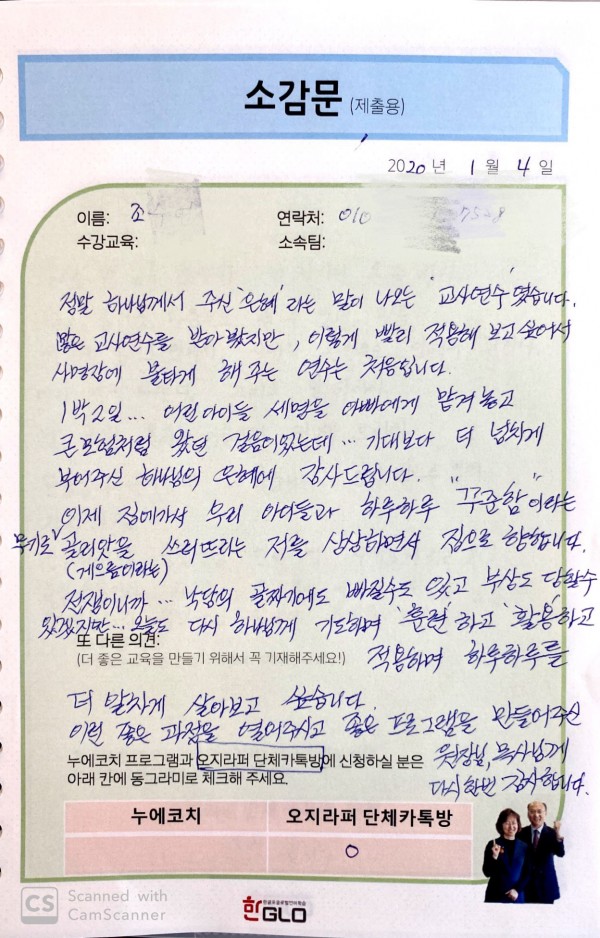 소감문 (제출용)
2020년 1월 4일
이름: 조
연락처: 010 7528
수강교육:
소속팀:
정말 하나님께서 주신 '은혜'라는 말이 나오는 '교사연수'였습니다.
많은 교사연수를 받아봤지만, 이렇게 빨리 적용해 보고 싶어서
사명감에 불타게 해 주는 연수는 처음입니다.
1박2일... 어린아이들 세명을 아빠에게 맡겨 놓고
큰모험처럼 왔던 걸음이었는데... 기대보다 더 넘치게
부어주신 하나님의 은혜에 감사드립니다.
이제 집에가서 우리 아이들과 하루하루 "꾸준함"이라는
무기로 골리앗을 쓰러뜨리는 저를 상상하면서 집으로 향합니다.
(게으름이라는)
전쟁이니까... 낙담의 골짜기에도 빠질수도 있고 부상도 당할수
있겠지만... 오늘도 다시 하나님께 기도하며 '훈련'하고 '활용'하고
또 다른 의견:
(더 좋은 교육을 만들기 위해서 꼭 기재해주세요!)
적용하며 하루하루를
더 알차게 살아보고 싶습니다.
이런 좋은 과정을 열어주시고 좋은 프로그램을 만들어주신
원장님, 목사님께
다시한번 감사합니다.
누에코치 프로그램과 오지라퍼 단체카톡방에 신청하실 분은
아래 칸에 동그라미로 체크해 주세요.
누에코치
오지라퍼 단체카톡방
○
CS Scanned with
CamScanner
한GLO